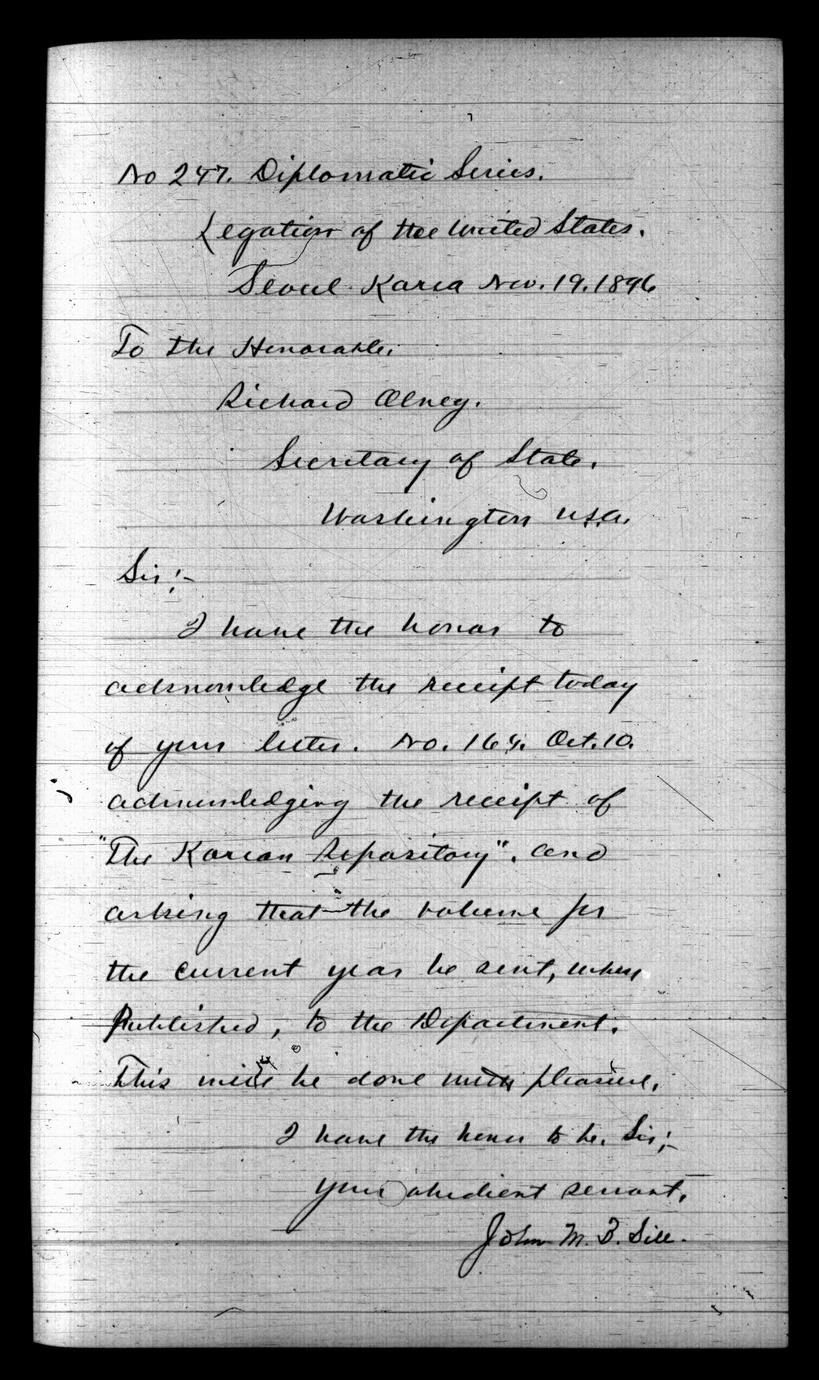 No 247. Diplomatic Series.
Legation of the United States.
Seoul Korea Nov. 19. 1896
To the Honorable,
Richard Olney.
Secretary of State.
Washington U.S.A.
Sir:-
I have the honor to
acknowledge the receipt today
of your letter. No. 164. Oct. 10.
acknowledging the receipt of
"The Korean Repository". and
asking that the volume for
the current year be sent, when
Published, to the Department.
This will be done with pleasure.
I have the honor to be. Sir;-
Your obedient servant,
John M. B. Sill.